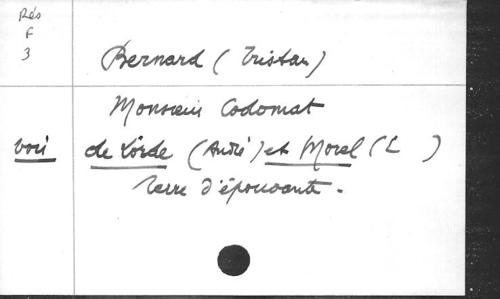 Rés
F
3
Bernard (Tristan)
Monsieur Codomat
voir de Lorde (André) et Morel (L )
Terre d'épouvante.